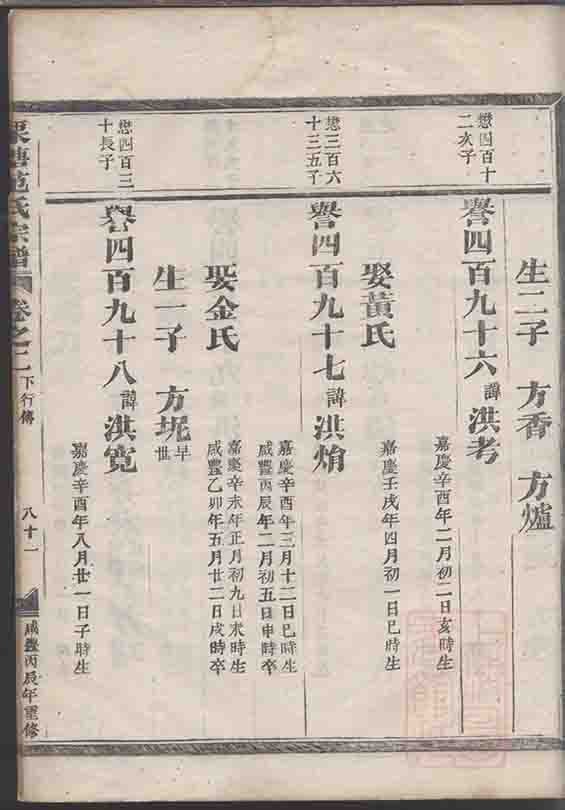 生二子 方香 方爐
懋四百十
二次子
譽四百九十六 諱 洪考
嘉慶辛酉年二月初二日亥時生
娶黃氏
嘉慶壬戌年四月初一日巳時生
懋三百六
十三五子
譽四百九十七 諱 洪焴
嘉慶辛酉年三月十二日巳時生
咸豐丙辰年二月初五日申時卒
娶金氏
嘉慶辛未年正月初九日未時生
咸豐乙卯年五月廿二日戌時卒
生一子 方坭 早世
懋四百三
十長子
譽四百九十八 諱 洪寬
嘉慶辛酉年八月廿一日子時生
塘范氏宗譜 卷之二 下行傳 八十一 咸豐丙辰年重修